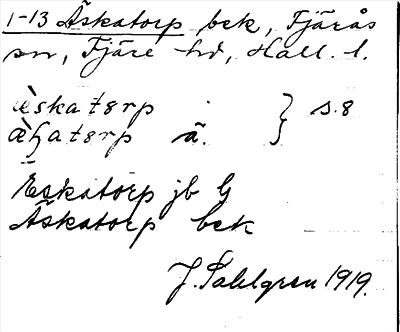 1-13 Äskatorp bek, Fjärås
sn, Fjäre hd, Hall. l.
æ̀skatɜrp } s. 8
æ̀ꜧatɜrp ä.
Eskatorp jb b
Äskatorp bek
J. Sahlgren 1919.